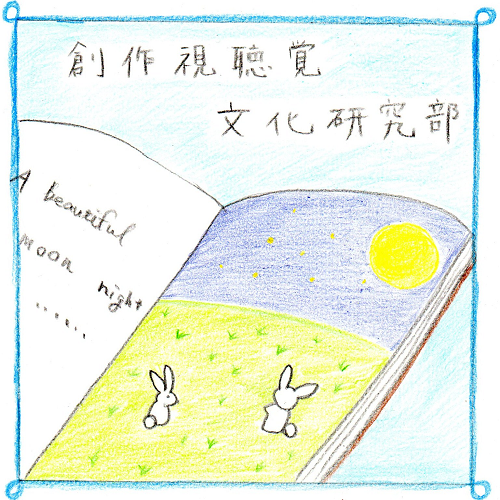 創作視聴覚
文化研究部
A beautiful
moon night
......